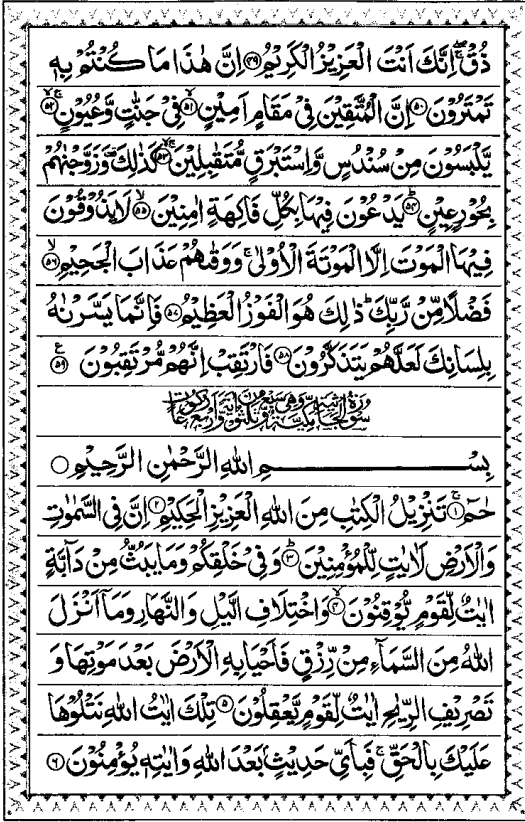 ذُقْ ۚۙ اِنَّكَ اَنْتَ الْعَزِيْزُ الْكَرِيْمُ ﴿۴۹﴾ اِنَّ هٰذَا مَا كُنْتُمْ بِهٖ
تَمْتَرُوْنَ ﴿۵۰﴾ اِنَّ الْمُتَّقِيْنَ فِىْ مَقَامٍ اَمِيْنٍ ﴿۵۱﴾ۙ فِىْ جَنّٰتٍ وَّعُيُوْنٍ ﴿۵۲﴾ۚۙ
يَّلْبَسُوْنَ مِنْ سُنْدُسٍ وَّاِسْتَبْرَقٍ مُّتَقٰبِلِيْنَ ﴿۵۳﴾ۚۙ كَذٰلِكَ وَزَوَّجْنٰهُمْ
بِحُوْرٍ عِيْنٍ ﴿۵۴﴾ؕ يَدْعُوْنَ فِيْهَا بِكُلِّ فَاكِهَةٍ اٰمِنِيْنَ ﴿۵۵﴾ۙ لَا يَذُوْقُوْنَ
فِيْهَا الْمَوْتَ اِلَّا الْمَوْتَةَ الْاُوْلٰى ۚ وَوَقٰىهُمْ عَذَابَ الْجَحِيْمِ ﴿۵۶﴾ۙ
فَضْلًا مِّنْ رَّبِّكَ ؕ ذٰلِكَ هُوَ الْفَوْزُ الْعَظِيْمُ ﴿۵۷﴾ فَاِنَّمَا يَسَّرْنٰهُ
بِلِسَانِكَ لَعَلَّهُمْ يَتَذَكَّرُوْنَ ﴿۵۸﴾ فَارْتَقِبْ اِنَّهُمْ مُّرْتَقِبُوْنَ ﴿۵۹﴾ ع
سُوْرَةُ الْجَاثِيَةِ مَكِّيَّةٌ وَّهِىَ سَبْعٌ وَّثَلٰثُوْنَ اٰيَةً وَّاَرْبَعُ رُكُوْعَاتٍ
بِسْمِ اللهِ الرَّحْمٰنِ الرَّحِيْمِ
حٰمٓ ﴿۱﴾ۚ تَنْزِيْلُ الْكِتٰبِ مِنَ اللهِ الْعَزِيْزِ الْحَكِيْمِ ﴿۲﴾ اِنَّ فِى السَّمٰوٰتِ
وَالْاَرْضِ لَاٰيٰتٍ لِّلْمُؤْمِنِيْنَ ﴿۳﴾ؕ وَفِىْ خَلْقِكُمْ وَمَا يَبُثُّ مِنْ دَآبَّةٍ
اٰيٰتٌ لِّقَوْمٍ يُّوْقِنُوْنَ ﴿۴﴾ۙ وَاخْتِلَافِ الَّيْلِ وَالنَّهَارِ وَمَاۤ اَنْزَلَ
اللهُ مِنَ السَّمَآءِ مِنْ رِّزْقٍ فَاَحْيَا بِهِ الْاَرْضَ بَعْدَ مَوْتِهَا وَ
تَصْرِيْفِ الرِّيٰحِ اٰيٰتٌ لِّقَوْمٍ يَّعْقِلُوْنَ ﴿۵﴾ تِلْكَ اٰيٰتُ اللهِ نَتْلُوْهَا
عَلَيْكَ بِالْحَقِّ ۚ فَبِاَىِّ حَدِيْثٍۢ بَعْدَ اللهِ وَاٰيٰتِهٖ يُؤْمِنُوْنَ ﴿۶﴾